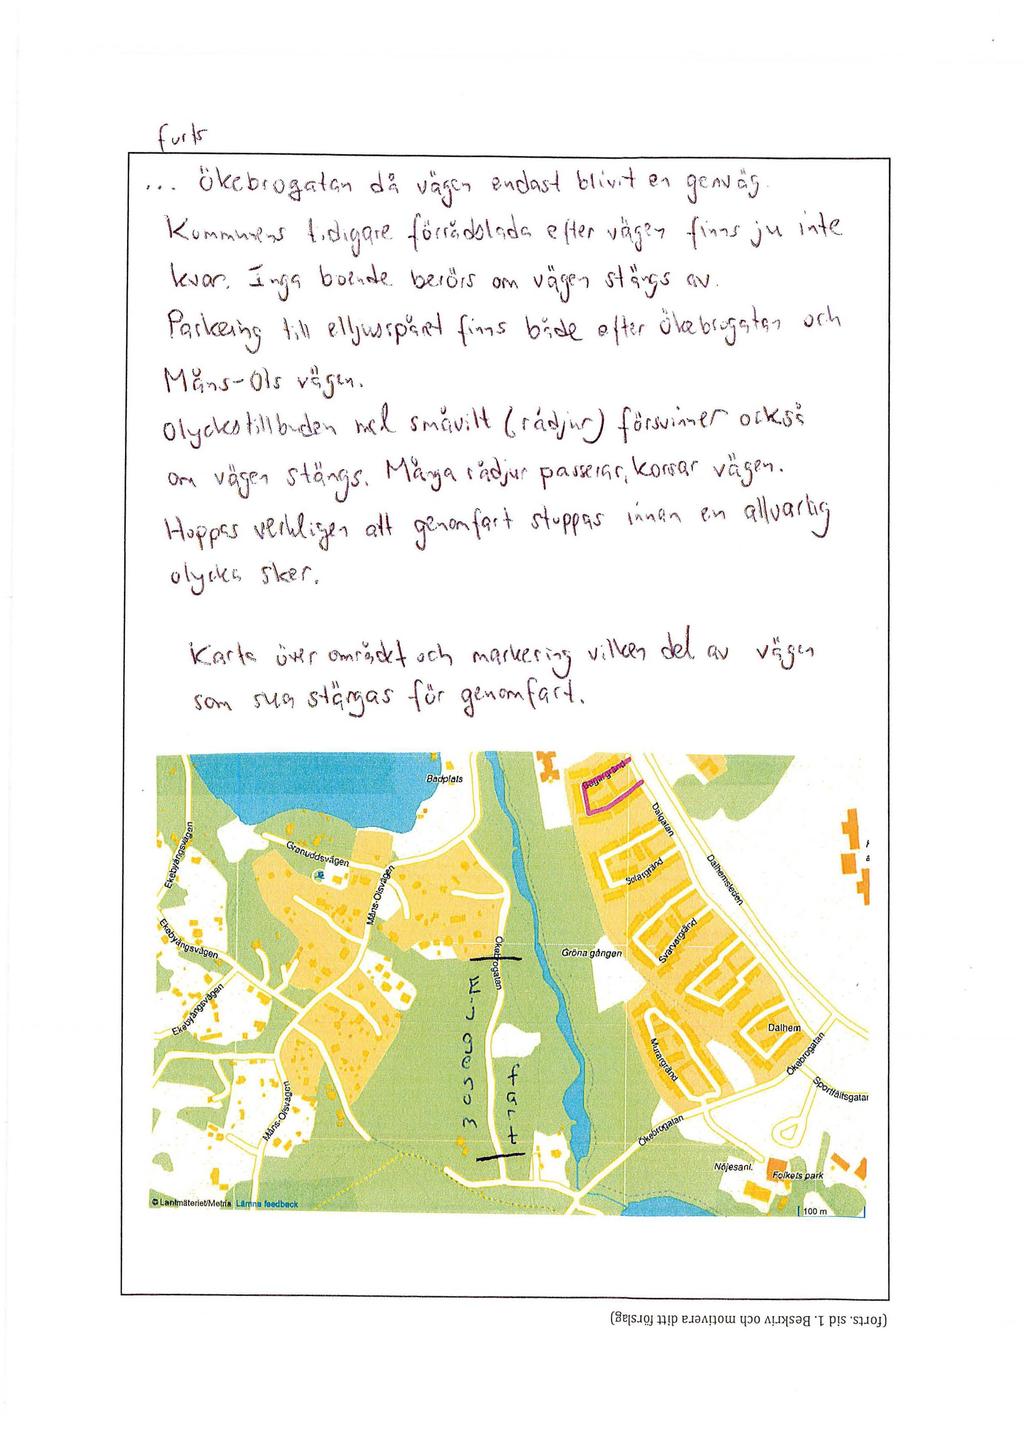 forts
... Ökebrogatan då vägen endast blivit en genväg.
Kommunens tidigare förrådslada efter vägen finns ju inte
kvar. Inga boende berörs om vägen stängs av.
Parkering till elljusspåret finns både efter Ökebrogatan och
Måns-Ols vägen.
Olyckstillbuden med småvilt (rådjur) försvinner också
om vägen stängs. Många rådjur passerar, korsar vägen.
Hoppas verkligen att genomfart stoppas innan en allvarlig
olycka sker.
Karta över området och markering vilken del av vägen
som ska stängas för genomfart.
Badplats
Bagargränd
Dalgatan
Ekebyängsvägen
Granuddsvägen
Måns-Olsvägen
Solargränd
Dalhemsleden
Ekebyängsvägen
Ökebrogatan
Gröna gången
Svarvargränd
Ekebyängsvägen
Genom
fart
Murargränd
Dalhem
Ökebrogatan
Sportfältsgatan
Måns-Olsvägen
Ökebrogatan
Nöjesanl.
Folkets park
© Lantmäteriet/Metria Lämna feedback
100 m
(forts. sid 1. Beskriv och motivera ditt förslag)